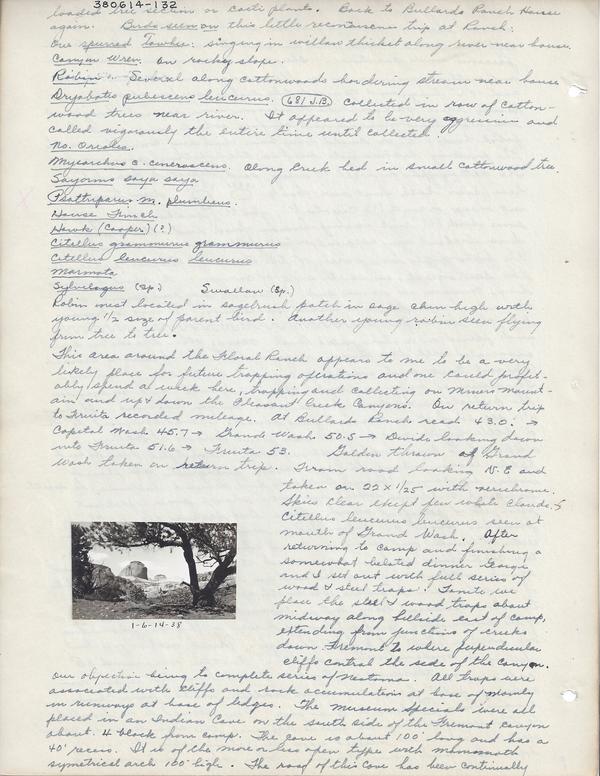 380614-132
loaded tree return or cacti plants. Back to Bullards Ranch House
again. Birds seen on this little reconnaissance trip at Ranch:
One spurred Towhee: singing in willow thicket along river near house.
Canyon Wren. On rocky slope.
Robin - Several along cottonwoods bordering stream near house
Dryobates pubescens leucurus. (681 J.B.) Collected in row of cotton-
wood trees near river. It appeared to be very aggressive and
called vigorously the entire time until collected.
No. Orioles.
Myiarchus c. cinerascens. Along Creek bed in small cottonwood tree.
Sayornis saya saya
Psaltriparus m. plumbeus.
House Finch
Hawk (Cooper) (?)
Citellus grammurus grammurus
Citellus leucurus leucurus
Marmota
Sylvilagus (sp.) Swallow (Sp.)
Robin nest located in sagebrush patch in sage chin high with
young 1/2 size of parent bird. Another young robin seen flying
from tree to tree.
This area around the Floral Ranch appears to me to be a very
likely place for future trapping operations and one could profit-
ably spend a week here, trapping and collecting on Miners Mount-
ain and up & down the Pleasant Creek Canyons. On return trip
to Fruita recorded mileage. At Bullards Ranch read 43.0. →
Capital Wash 45.7 → Grand Wash 50.5 → Divide looking down
into Fruita 51.6 → Fruita 53. Golden Throne of Grand
Wash taken on return trip. From road looking N.E and
taken on 22 x 1/25 with verichrome.
Skies clear except few white clouds.
Citellus leucurus leucurus seen at
mouth of Grand Wash. After
returning to camp and finishing a
somewhat belated dinner George
and I set out with full series of
wood & steel traps. Tonite we
place the steel & wood traps about
midway along hillside east of camp,
extending from junctions of creeks
down Fremont to where perpendicular
cliffs control the side of the canyon.
1-6-14-38
Our objective being to complete series of Neotoma. All traps were
associated with cliffs and rock accumulations at base of mainly
in runways at base of ledges. The museum specials were all
placed in an Indian Cave on the south side of the Fremont Canyon
about 4 block from camp. The cave is about 100' long and has a
40' recess. It is of the more or less open type with mammoth
symetrical arch 100' high. The roof of this cave has been continually